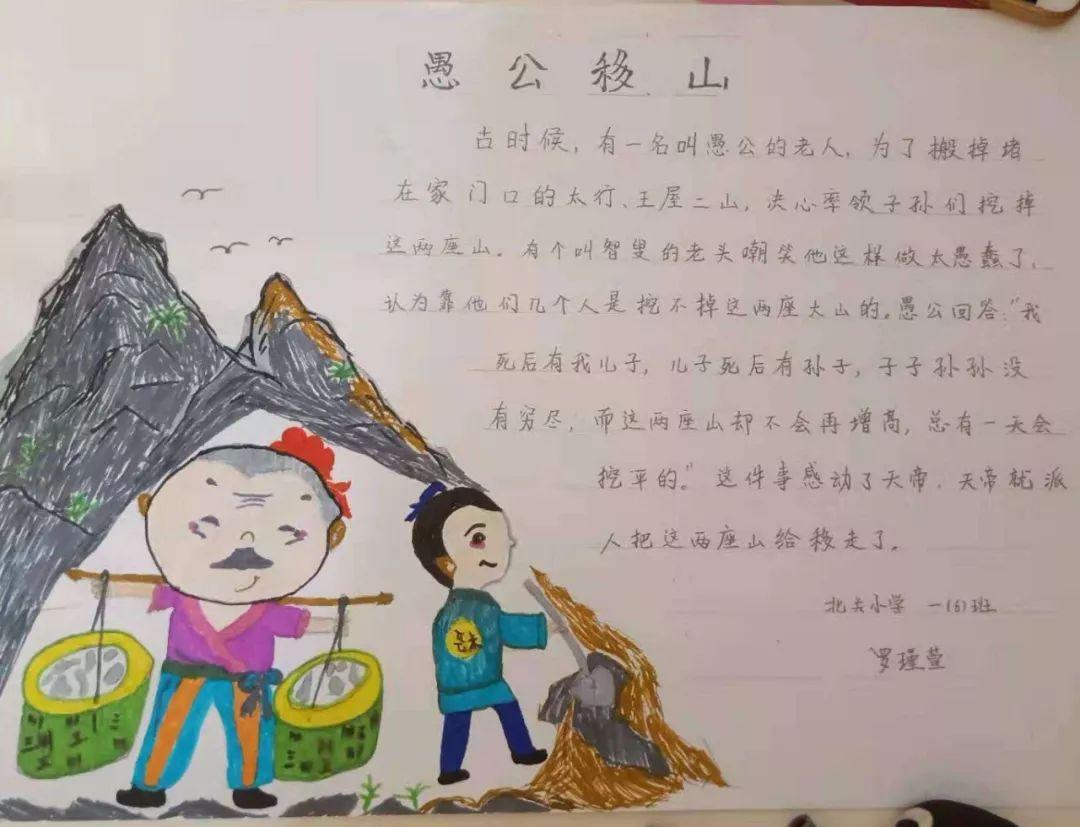 愚公移山
古时候，有一名叫愚公的老人，为了搬掉堵
在家门口的太行、王屋二山，决心率领子孙们挖掉
这两座山。有个叫智叟的老头嘲笑他这样做太愚蠢了，
认为靠他们几个人是挖不掉这两座大山的。愚公回答："我
死后有我儿子，儿子死后有孙子，子子孙孙没
有穷尽，而这两座山却不会再增高，总有一天会
挖平的。"这件事感动了天帝，天帝就派
人把这两座山给移走了。
北关小学 一(6)班
罗瑾萱